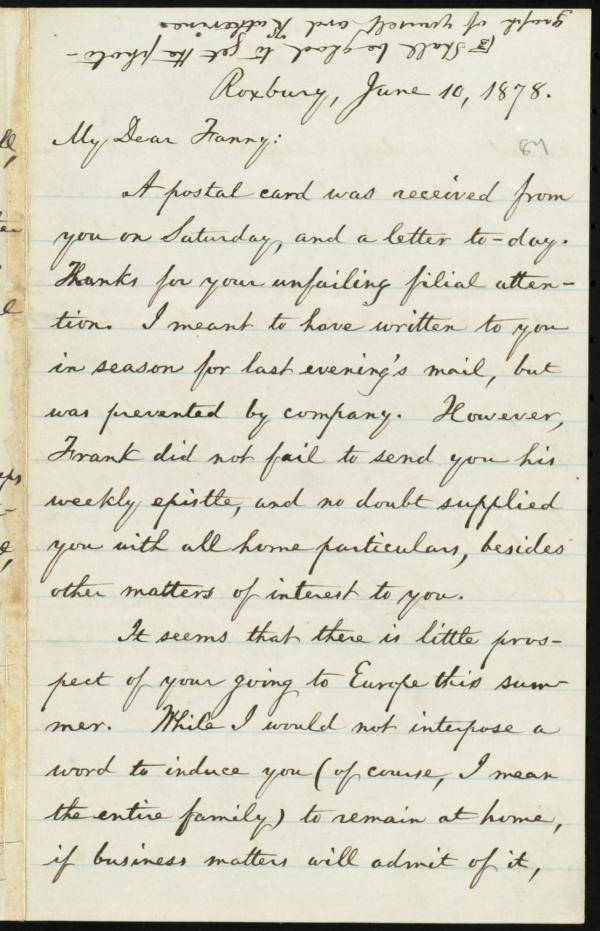 (I shall be glad to get the photo-
graph of yourself and Katherine.
Roxbury, June 10, 1878.
My Dear Fanny:
87
A postal card was received from
you on Saturday, and a letter to-day.
Thanks for your unfailing filial atten-
tion. I meant to have written to you
in season for last evening's mail, but
was prevented by company. However,
Frank did not fail to send you his
weekly epistle, and no doubt supplied
you with all home particulars, besides
other matters of interest to you.
It seems that there is little pros-
pect of your going to Europe this sum-
mer. While I would not interpose a
word to induce you (of course, I mean
the entire family) to remain at home,
if business matters will admit of it,